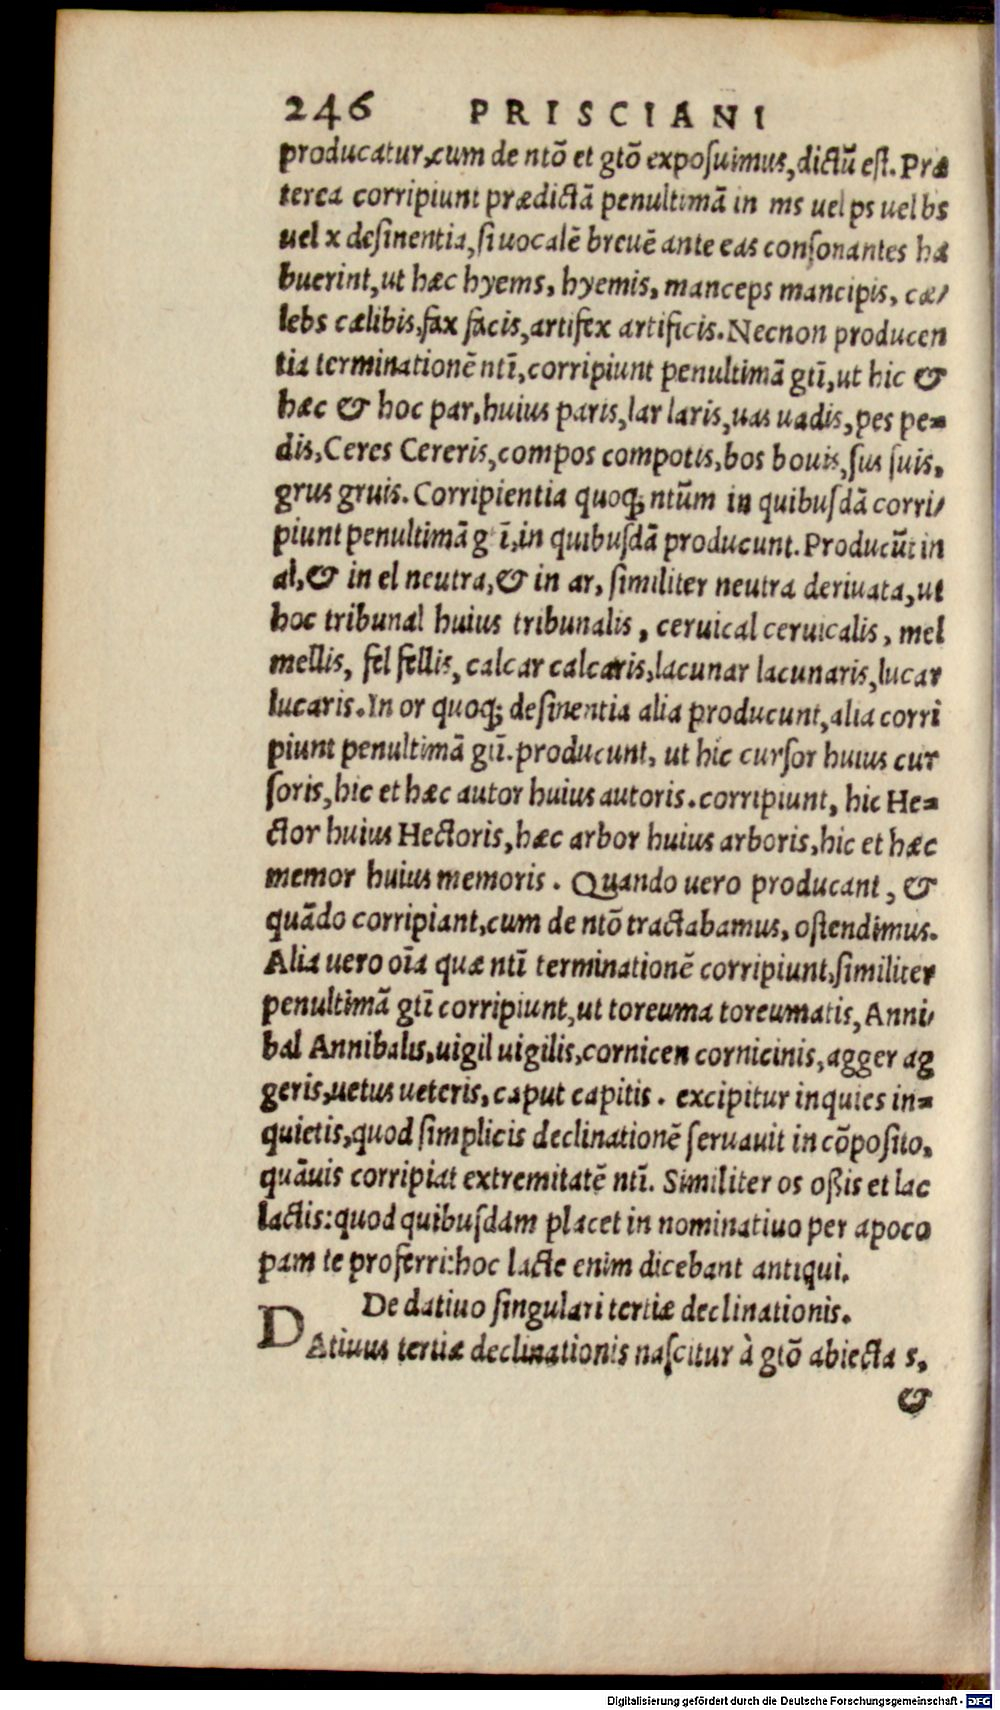 246 PRISCIANI
producatur, cum de ntō et gtō exposuimus, dictū est. Præ
terea corripiunt prædictā penultimā in ms uel ps uel bs
uel x desinentia, si uocalē breuē ante eas consonantes ha
buerint, ut hæc hyems, hyemis, manceps mancipis, cæ/
lebs cælibis, fax facis, artifex artificis. Necnon producen
tia terminationē ntī, corripiunt penultimā gtī, ut hic &
hæc & hoc par, huius paris, lar laris, uas uadis, pes pe=
dis, Ceres Cereris, compos compotis, bos bouis, sus suis,
grus gruis. Corripientia quoq; ntūm in quibusdā corri/
piunt penultimā g ī, in quibusdā producunt. Producūt in
al, & in el neutra, & in ar, similiter neutra deriuata, ut
hoc tribunal huius tribunalis, ceruical ceruicalis, mel
mellis, fel fellis, calcar calcaris, lacunar lacunaris, lucar
lucaris. In or quoq; desinentia alia producunt, alia corri
piunt penultimā gū. producunt, ut hic cursor huius cur
soris, hic et hæc autor huius autoris. corripiunt, hic He=
ctor huius Hectoris, hæc arbor huius arboris, hic et hæc
memor huius memoris. Quando uero producant, &
quādo corripiant, cum de ntō tractabamus, ostendimus.
Alia uero oīa quæ ntī terminationē corripiunt, similiter
penultimā gtī corripiunt, ut toreuma toreumatis, Anni/
bal Annibalis, uigil uigilis, cornicen cornicinis, agger ag
geris, uetus ueteris, caput capitis. excipitur inquies in=
quietis, quod simplicis declinationē seruauit in cōposito,
quāuis corripiat extremitatē ntī. Similiter os oßis et lac
lactis: quod quibusdam placet in nominatiuo per apoco
pam te proferri: hoc lacte enim dicebant antiqui.
De datiuo singulari tertiæ declinationis.
DAtiuus tertiæ declinationis nascitur à gtō abiecta s,
&
Digitalisierung gefördert durch die Deutsche Forschungsgemeinschaft - DFG